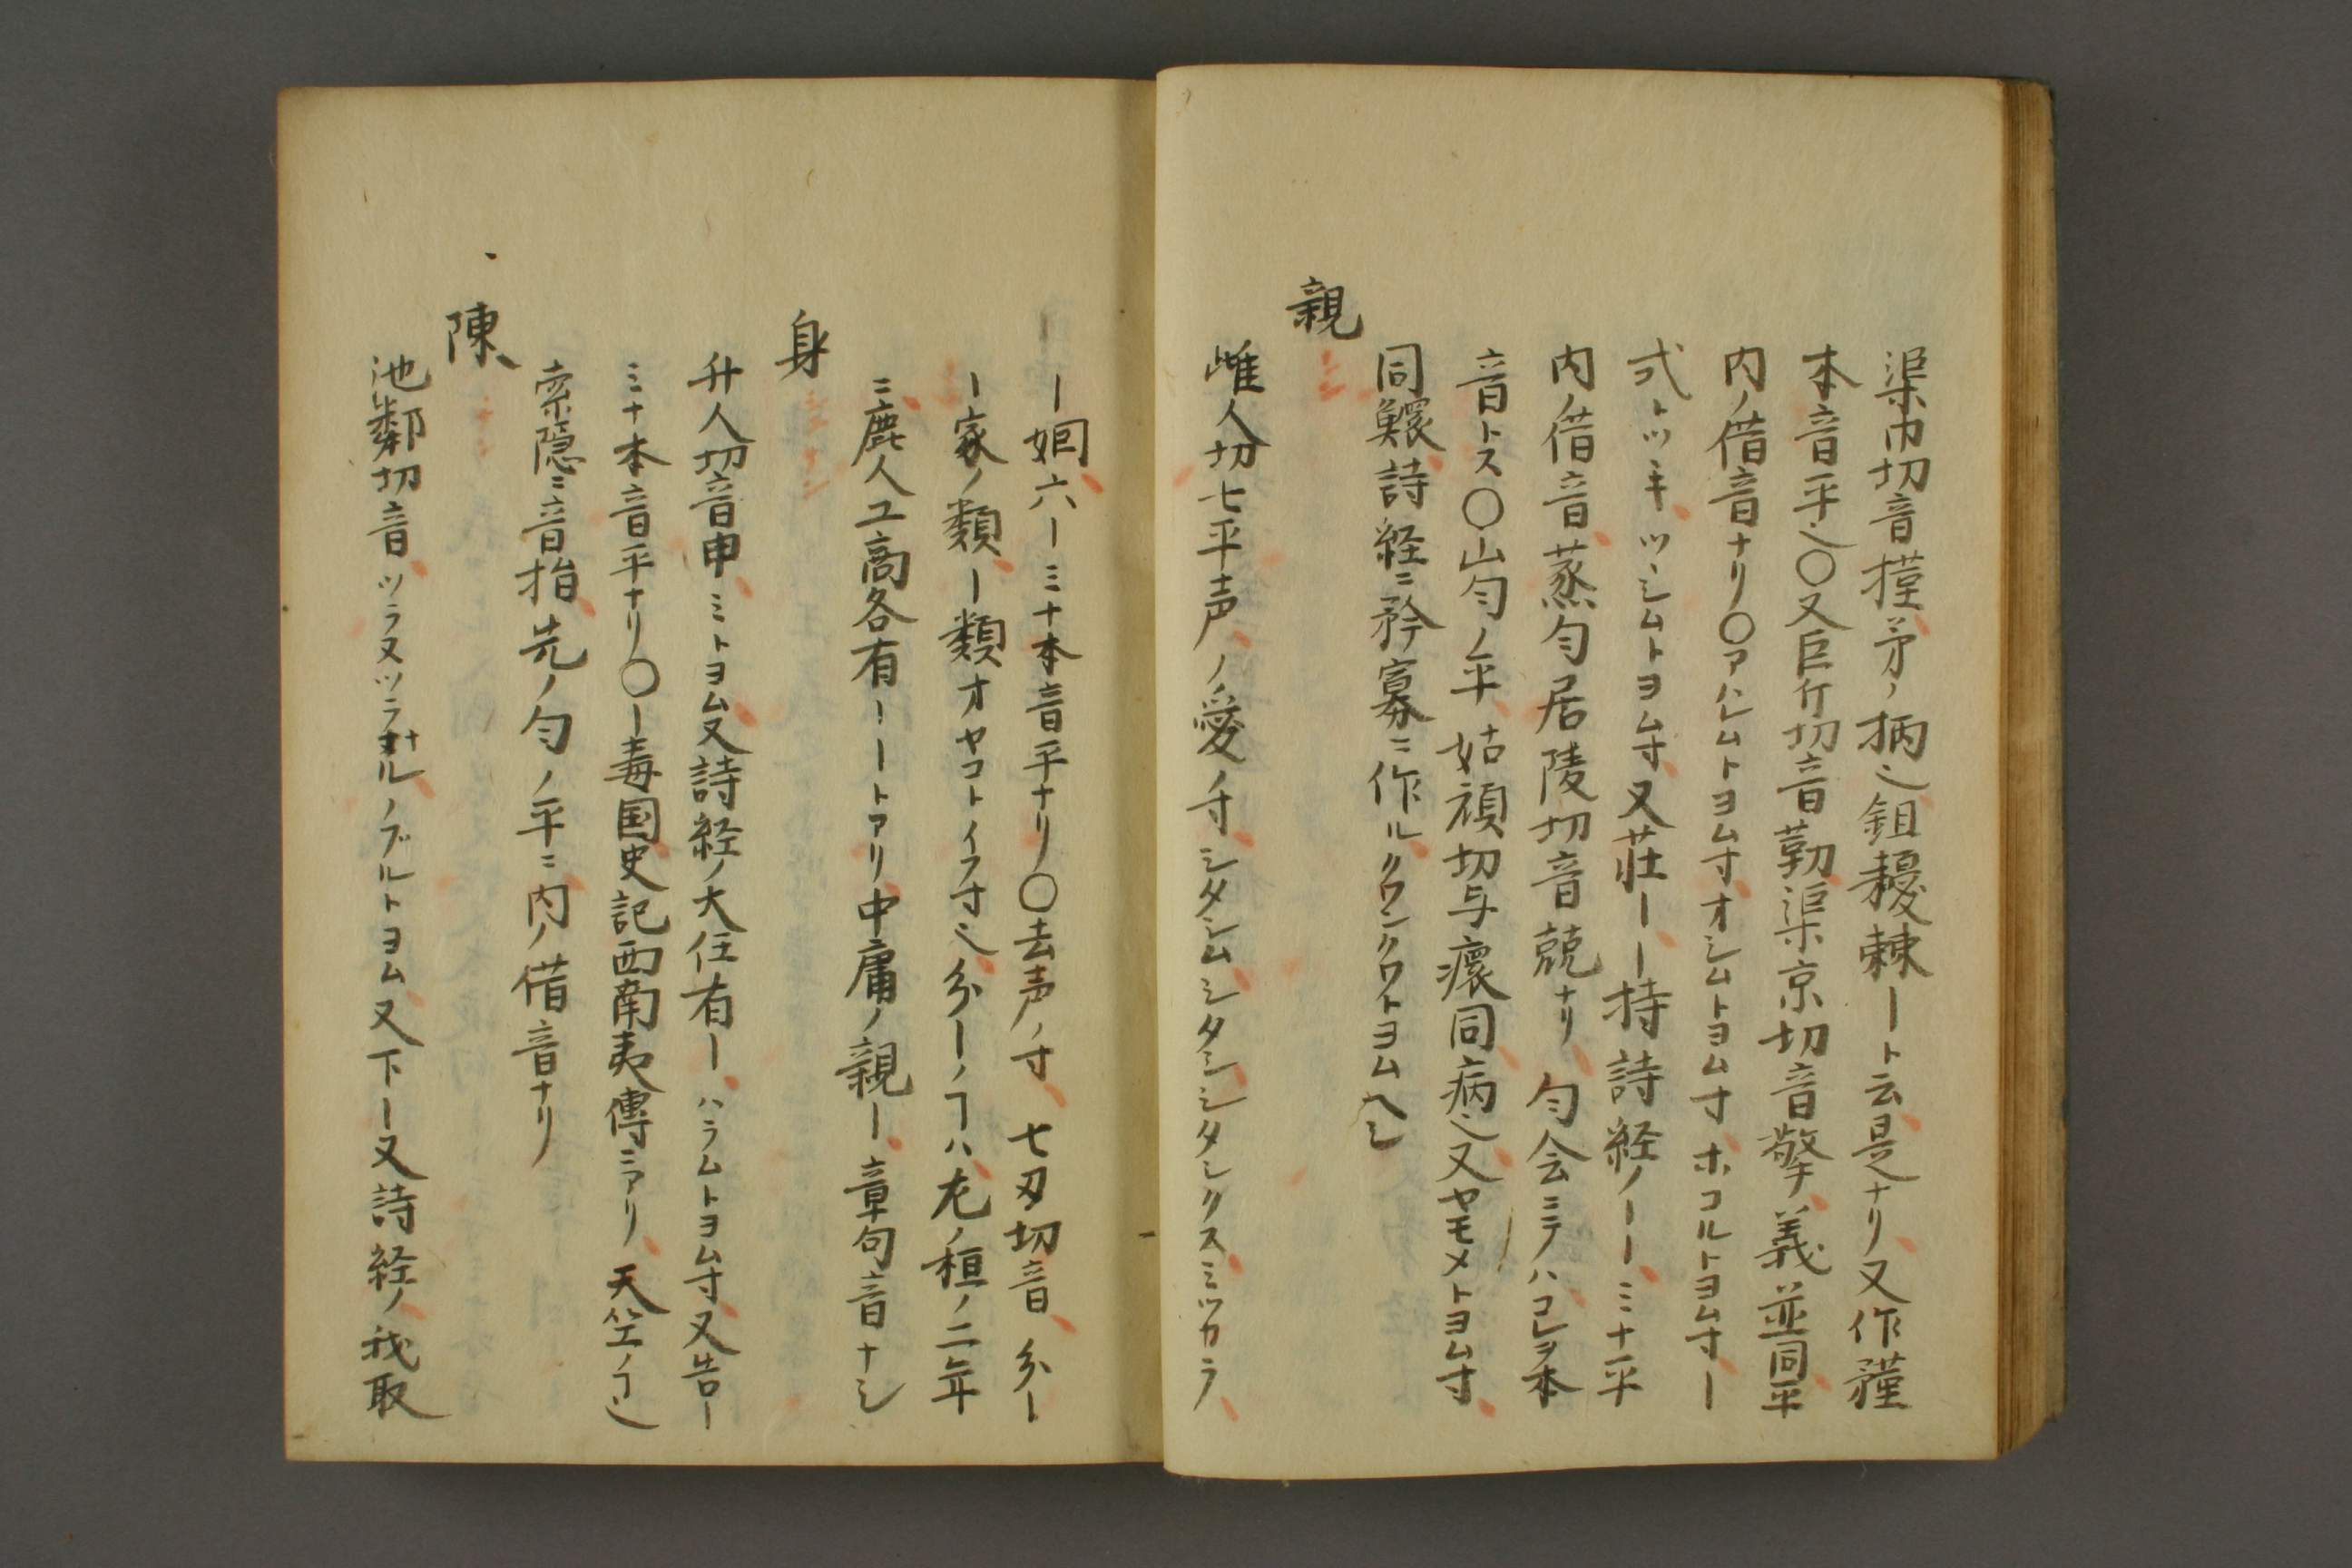 渠巾切音㨷矛ノ柄也鉏耰棘ートニ云是ナリ又作㻗
本音平也〇又巨斤切音勤渠京切音擎義並同平
内ノ借音ナリ〇アハレムトヨム寸オシムトヨム寸ホコルトヨム寸ー
式トツキツヽシムトヨム寸又荘ーー持詩経ノーーミナ平
内ノ借音蒸匀居陵切音兢ナリ匀会ミテハコレヲ本
音トス〇山匀ノ平姑頑切与癏同病也又ヤモメトヨム寸
同鰥詩経ニ矜寡ニ作ルクワンクワトヨムヘシ
親
雌人切七平声ノ愛ノ寸シタシムシタシシタシクスミツカラ
ー姻六ーミナ本音平ナリ〇去声ノ寸七刃切音ー
ー家ノ類ー類オヤコトイフ寸也ーノヿハ左ノ桓ノ二年
ニ庶人工商各有ーートアリ中庸ノ親ー章句音ナシ
身
升人切音申ミトヨム又詩経ノ大任有ーハラムトヨム寸又告ー
ミナ本音平ナリ〇ー毒国史記西南夷傳ニアリ天竺ノヿ也
索隠ニ音指先ノ匀ノ平ニ内ノ借音ナリ
陳
池鄰切音ツラヌツラナルノブルトヨム又下ー又詩経ノ我取